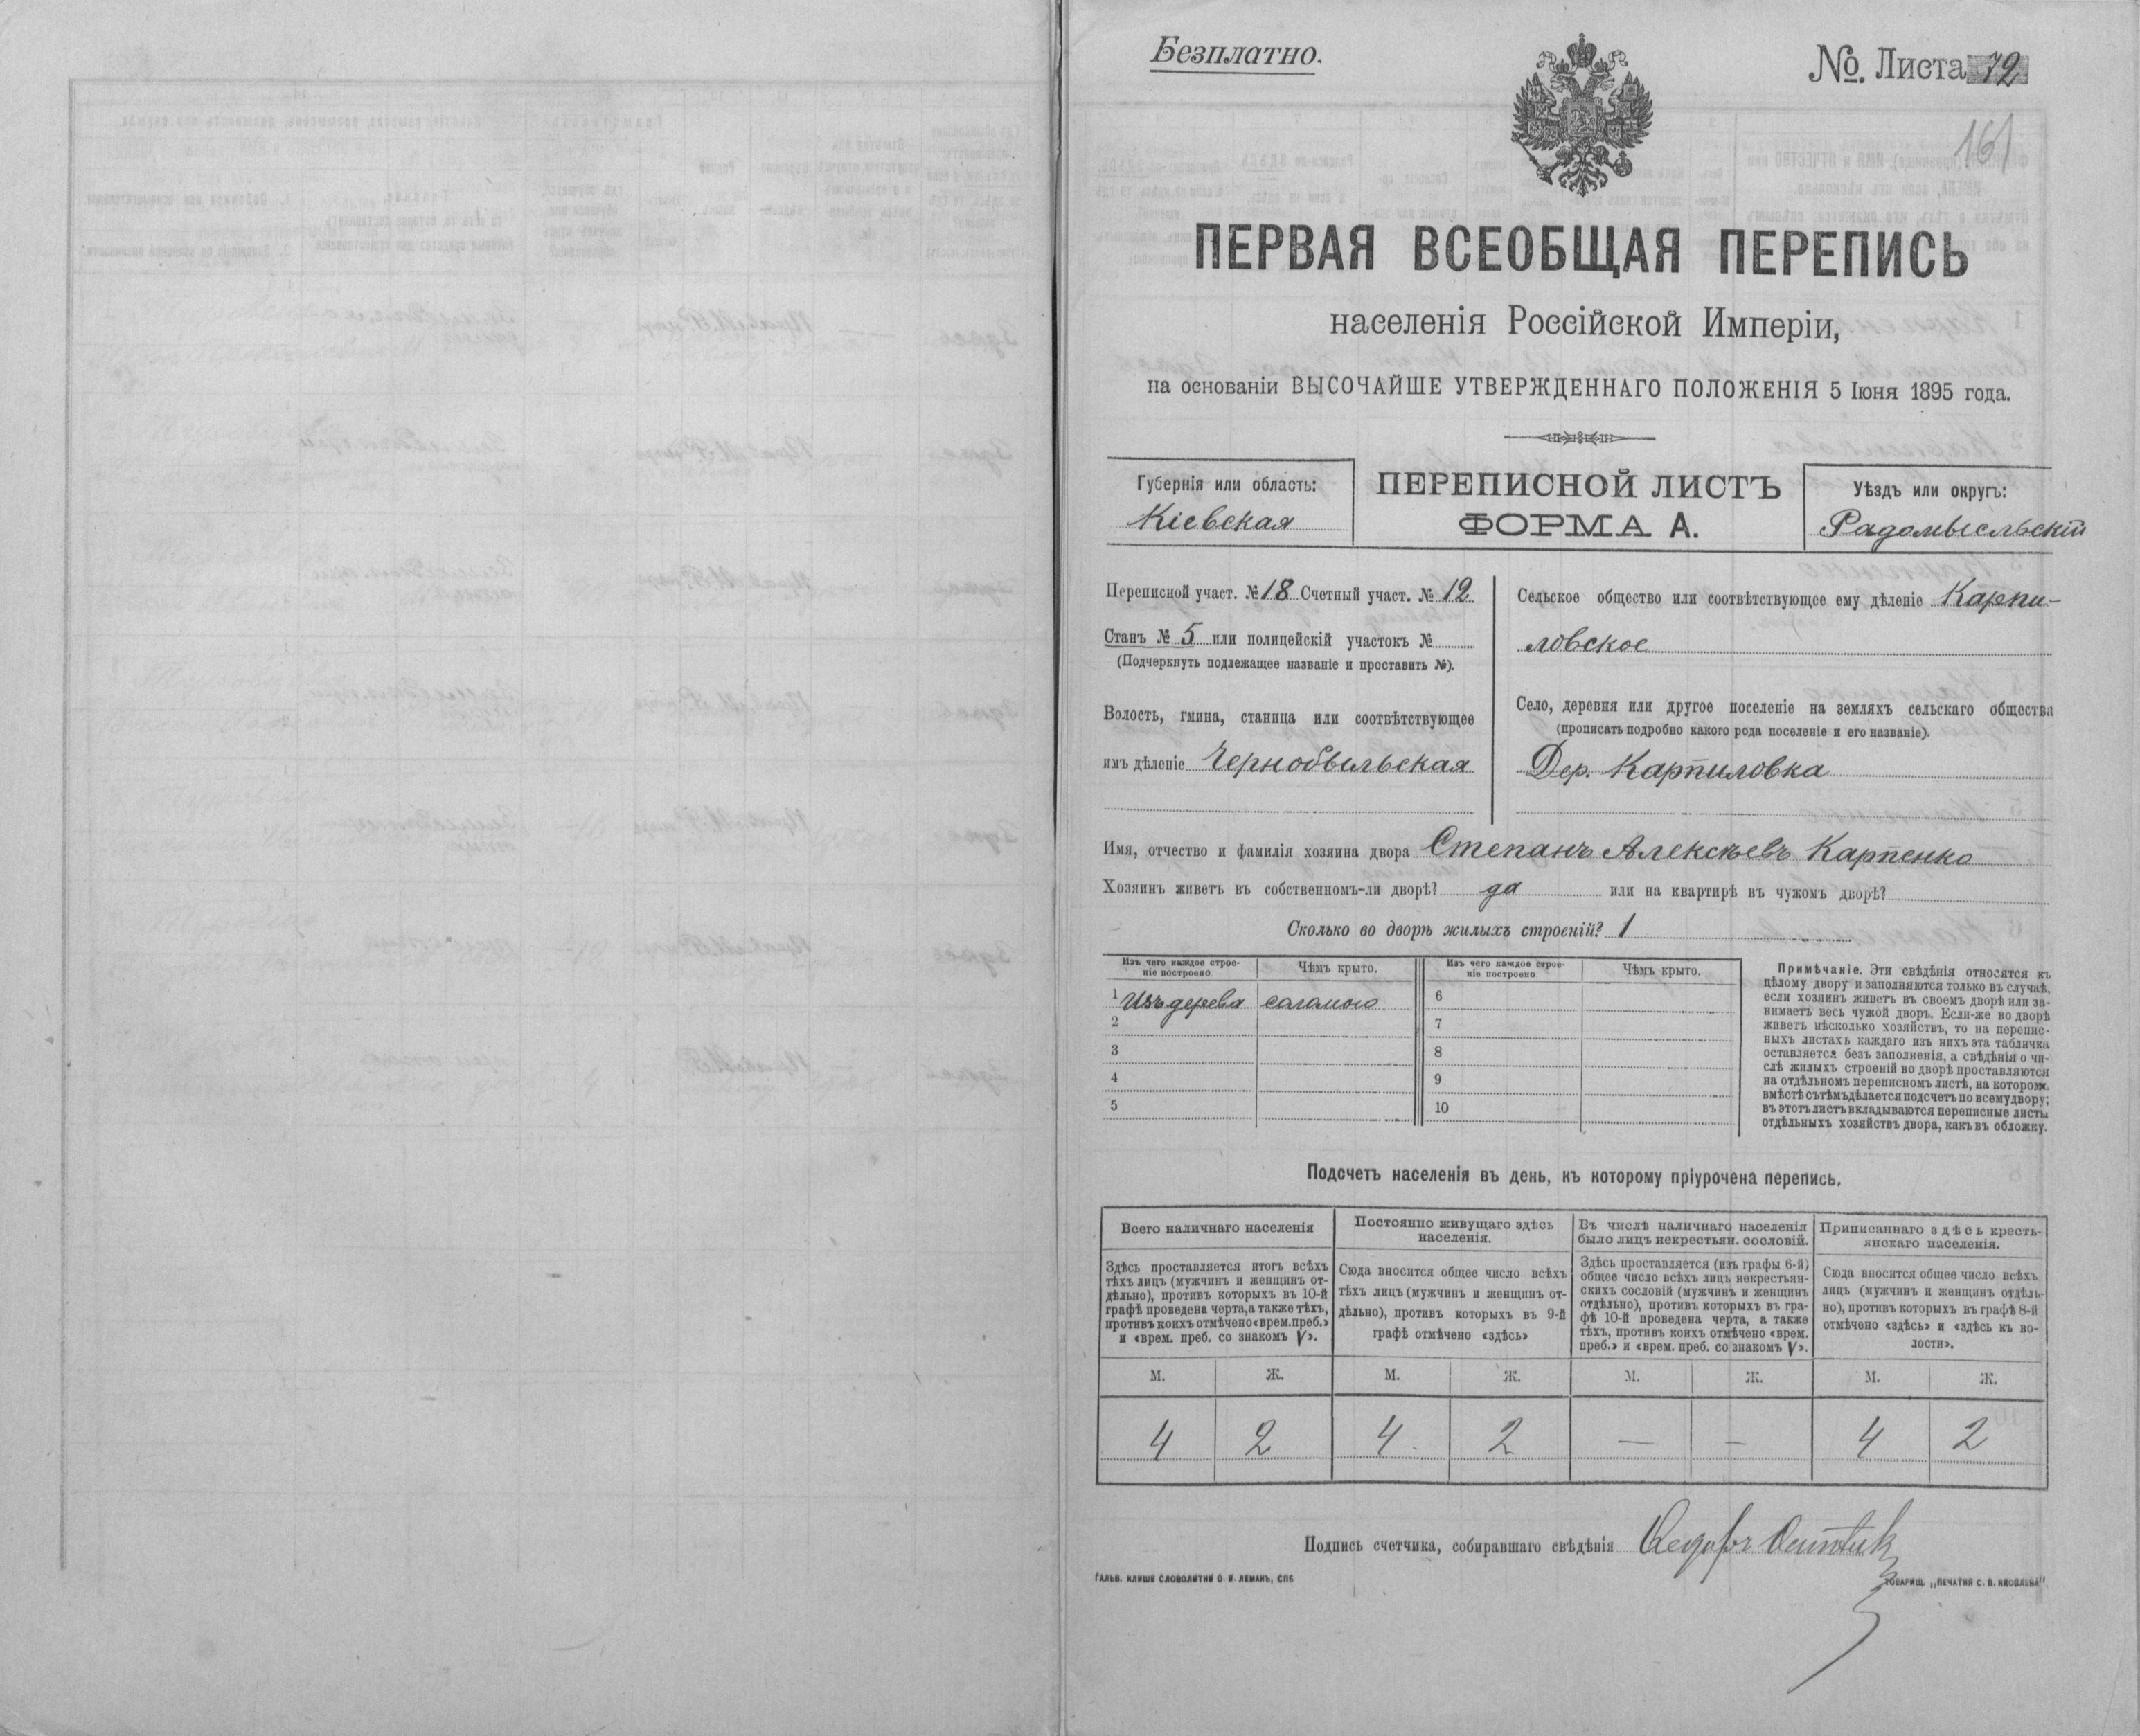 Безплатно.
№. Листа 72
161
ПЕРВАЯ ВСЕОБЩАЯ ПЕРЕПИСЬ
населенія Россійской Имперіи,
на основаніи ВЫСОЧАЙШЕ УТВЕРЖДЕННАГО ПОЛОЖЕНІЯ 5 Іюня 1895 года.
Губернія или область:
Кіевская
ПЕРЕПИСНОЙ ЛИСТЪ
ФОРМА А.
Уѣздъ или округъ:
Радомысльскій
Переписной участ. № 18 Счетный участ. № 12
Станъ № 5 или полицейскій участокъ №
(Подчеркнуть подлежащее названіе и проставить №).
Волость, гмина, станица или соотвѣтствующее
имъ дѣленіе Чернобыльская
Сельское общество или соотвѣтствующее ему дѣленіе Карпи-
ловское
Село, деревня или другое поселеніе на земляхъ сельскаго общества
(прописать подробно какого рода поселеніе и его названіе).
Дер. Карпиловка
Имя, отчество и фамилія хозяина двора Степанъ Алексѣевъ Карпенко
Хозяинъ живетъ въ собственномъ-ли дворѣ? да или на квартирѣ въ чужомъ дворѣ?
Сколько во дворѣ жилыхъ строеній? 1
Изъ чего каждое строе-
ніе построено
Чѣмъ крыто.
Изъ чего каждое строе-
ніе построено
Чѣмъ крыто.
1 Изъ дерева соломою
2
3
4
5
6
7
8
9
10
Примѣчаніе. Эти свѣдѣнія относятся къ
цѣлому двору и заполняются только въ случаѣ,
если хозяинъ живетъ въ своемъ дворѣ или за-
нимаетъ весь чужой дворъ. Если-же во дворѣ
живетъ нѣсколько хозяйствъ, то на перепис-
ныхъ листахъ каждаго изъ нихъ эта табличка
оставляется безъ заполненія, а свѣдѣнія о чи-
слѣ жилыхъ строеній во дворѣ проставляются
на отдѣльномъ переписномъ листѣ, на которомъ
вмѣстѣ съ тѣмъ дѣлается подсчетъ по всему двору;
въ этотъ листъ вкладываются переписные листы
отдѣльныхъ хозяйствъ двора, какъ въ обложку.
Подсчетъ населенія въ день, къ которому пріурочена перепись.
Всего наличнаго населенія
Здѣсь проставляется итогъ всѣхъ
тѣхъ лицъ (мужчинъ и женщинъ от-
дѣльно), противъ которыхъ въ 10-й
графѣ проведена черта, а также тѣхъ,
противъ коихъ отмѣчено «врем. преб.»
и «врем. преб. со знакомъ V».
Постоянно живущаго здѣсь
населенія.
Сюда вносится общее число всѣхъ
тѣхъ лицъ (мужчинъ и женщинъ от-
дѣльно), противъ которыхъ въ 9-й
графѣ отмѣчено «здѣсь»
Въ числѣ наличнаго населенія
было лицъ некрестьян. сословій.
Здѣсь проставляется (изъ графы 6-й)
общее число всѣхъ лицъ некрестьян-
скихъ сословій (мужчинъ и женщинъ
отдѣльно), противъ которыхъ въ гра-
фѣ 10-й проведена черта, а также
тѣхъ, противъ коихъ отмѣчено «врем.
преб.» и «врем. преб. со знакомъ V».
Приписаннаго здѣсь кресть-
янскаго населенія.
Сюда вносится общее число всѣхъ
лицъ (мужчинъ и женщинъ отдѣль-
но), противъ которыхъ въ графѣ 8-й
отмѣчено «здѣсь» и «здѣсь къ во-
лости».
М. Ж. М. Ж. М. Ж. М. Ж.
4 2 4 2 — — 4 2
Подпись счетчика, собиравшаго свѣдѣнія
ГАЛЬВ. КЛИШЕ СЛОВОЛИТНИ О. И. ЛЕМАНЪ, СПБ
ТОВАРИЩ. „ПЕЧАТНЯ С. П. ЯКОВЛЕВА"